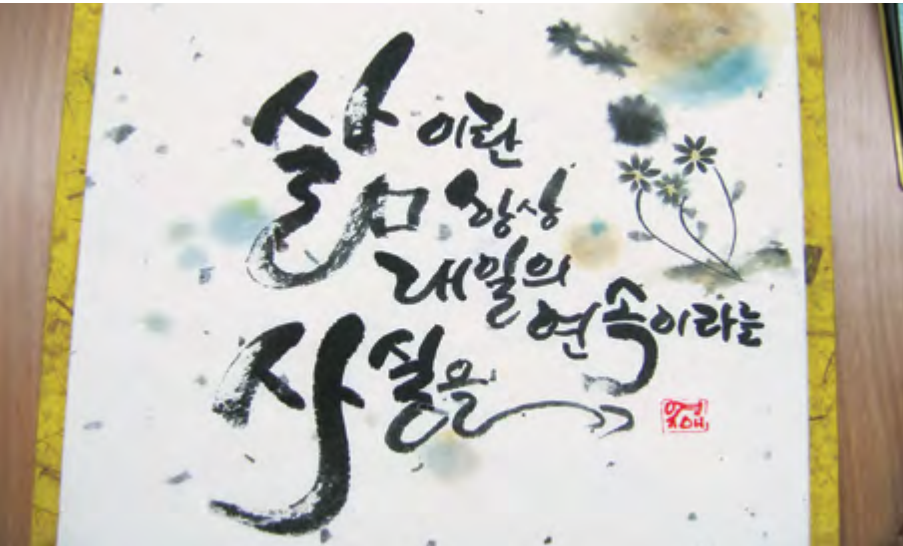 삶이란
항상
내일의
연속이라는
사실을